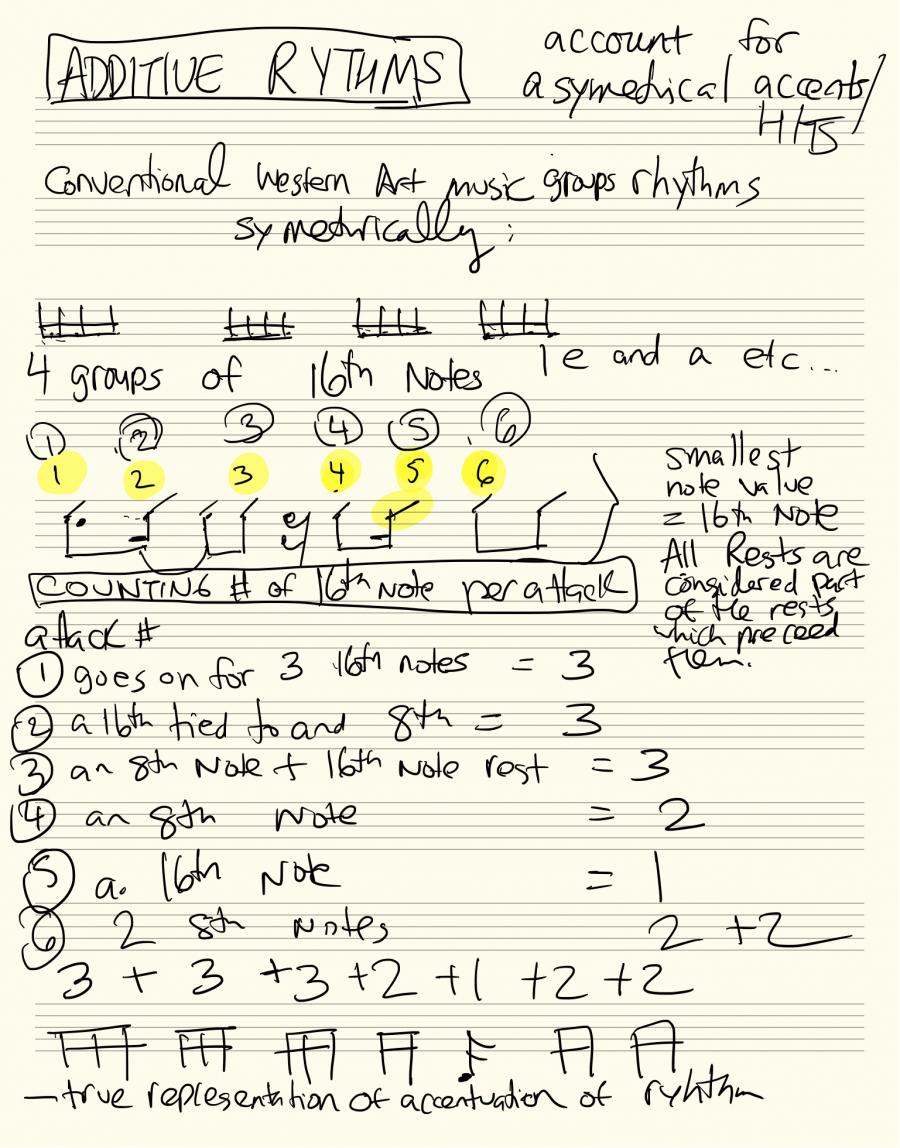 ADDITIVE RYTHMS
account for
asymetrical accents/
HITS
Conventional Western Art music groups rhythms
symetrically:
4 groups of 16th Notes
1 e and a etc...
1 2 3 4 5 6
1 2 3 4 5 6
smallest
note value
= 16th Note
All Rests are
considered part
of the rests
which preceed
them.
COUNTING # of 16th Note per attack
attack #
1 goes on for 3 16th notes = 3
2 a 16th tied to and 8th = 3
3 an 8th Note + 16th Note rest = 3
4 an 8th Note = 2
5 a. 16th Note = 1
6 2 8th Notes 2 + 2
3 + 3 + 3 + 2 + 1 + 2 + 2
— true representation of accentuation of ryhthm